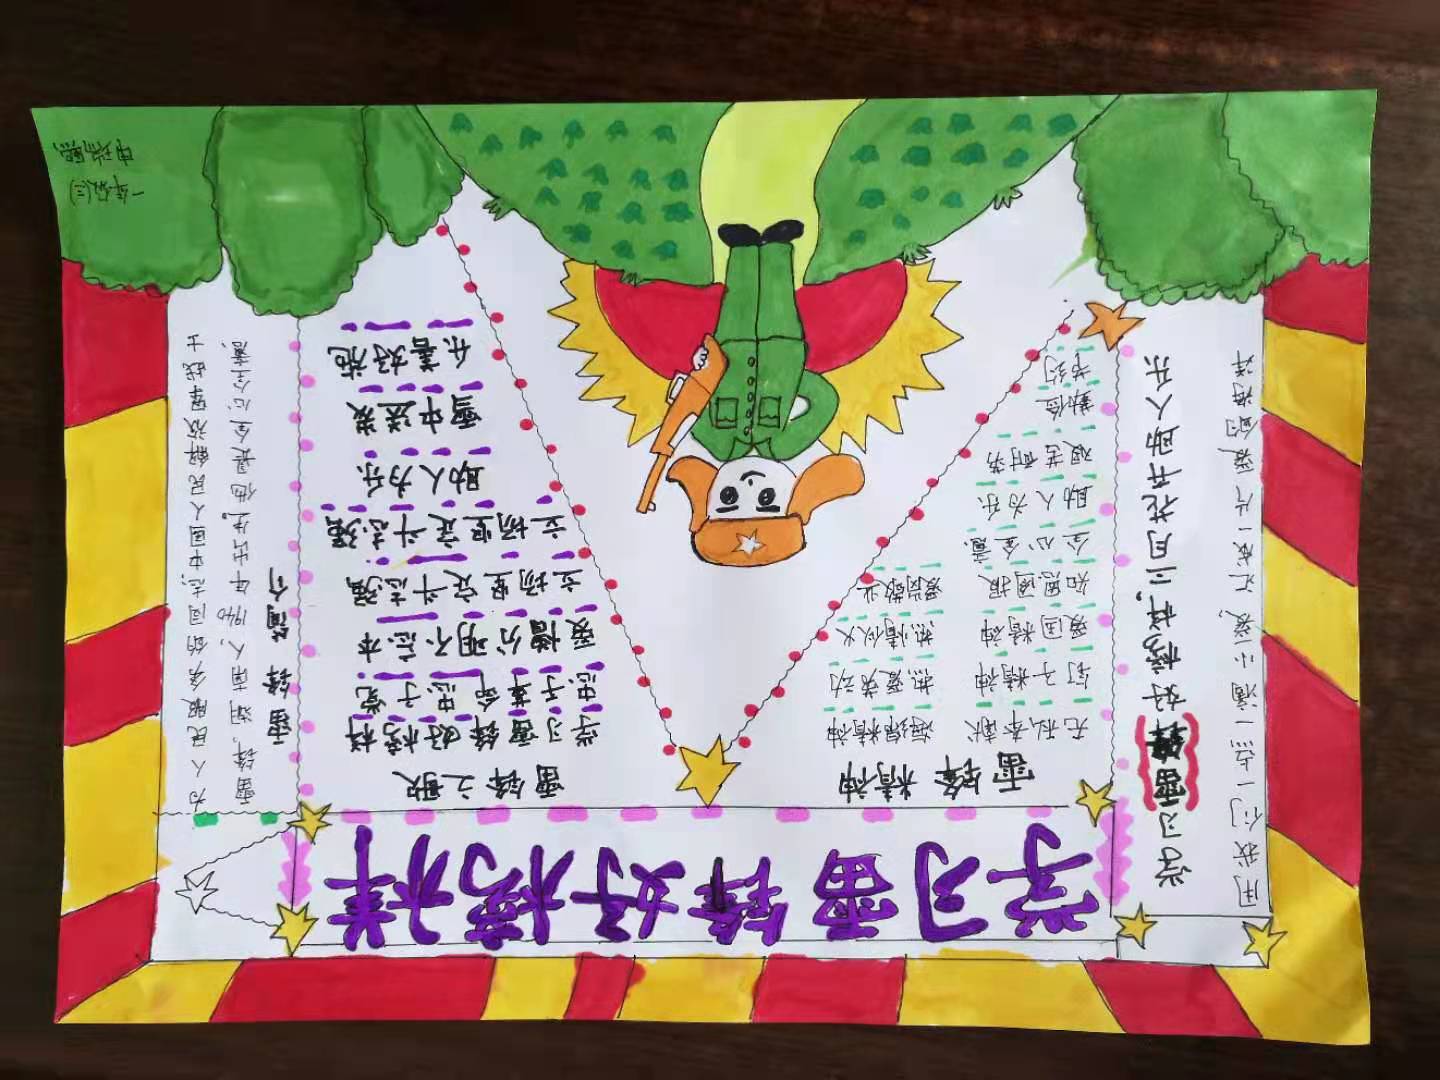 学习雷锋好榜样
用我们一点一滴小爱,汇成一片爱的海洋
学习(雷锋)好榜样,三月花开助人乐
雷锋精神
无私奉献 海绵精神
钉子精神 热爱劳动
爱国精神 热情似火
知恩图报 爱岗敬业
全心全意
助人为乐
艰苦耐劳
勤俭
节约
雷锋之歌
学习雷锋好榜样
忠于革命忠于党
爱憎分明不忘本
立场坚定斗志强
立场坚定斗志强
助人为乐
雪中送炭
乐善好施
雷锋简介
雷锋,湖南人,1940年出生,他是全心全意、
为人民服务的同志;中国人民解放军战士
一年级(三)